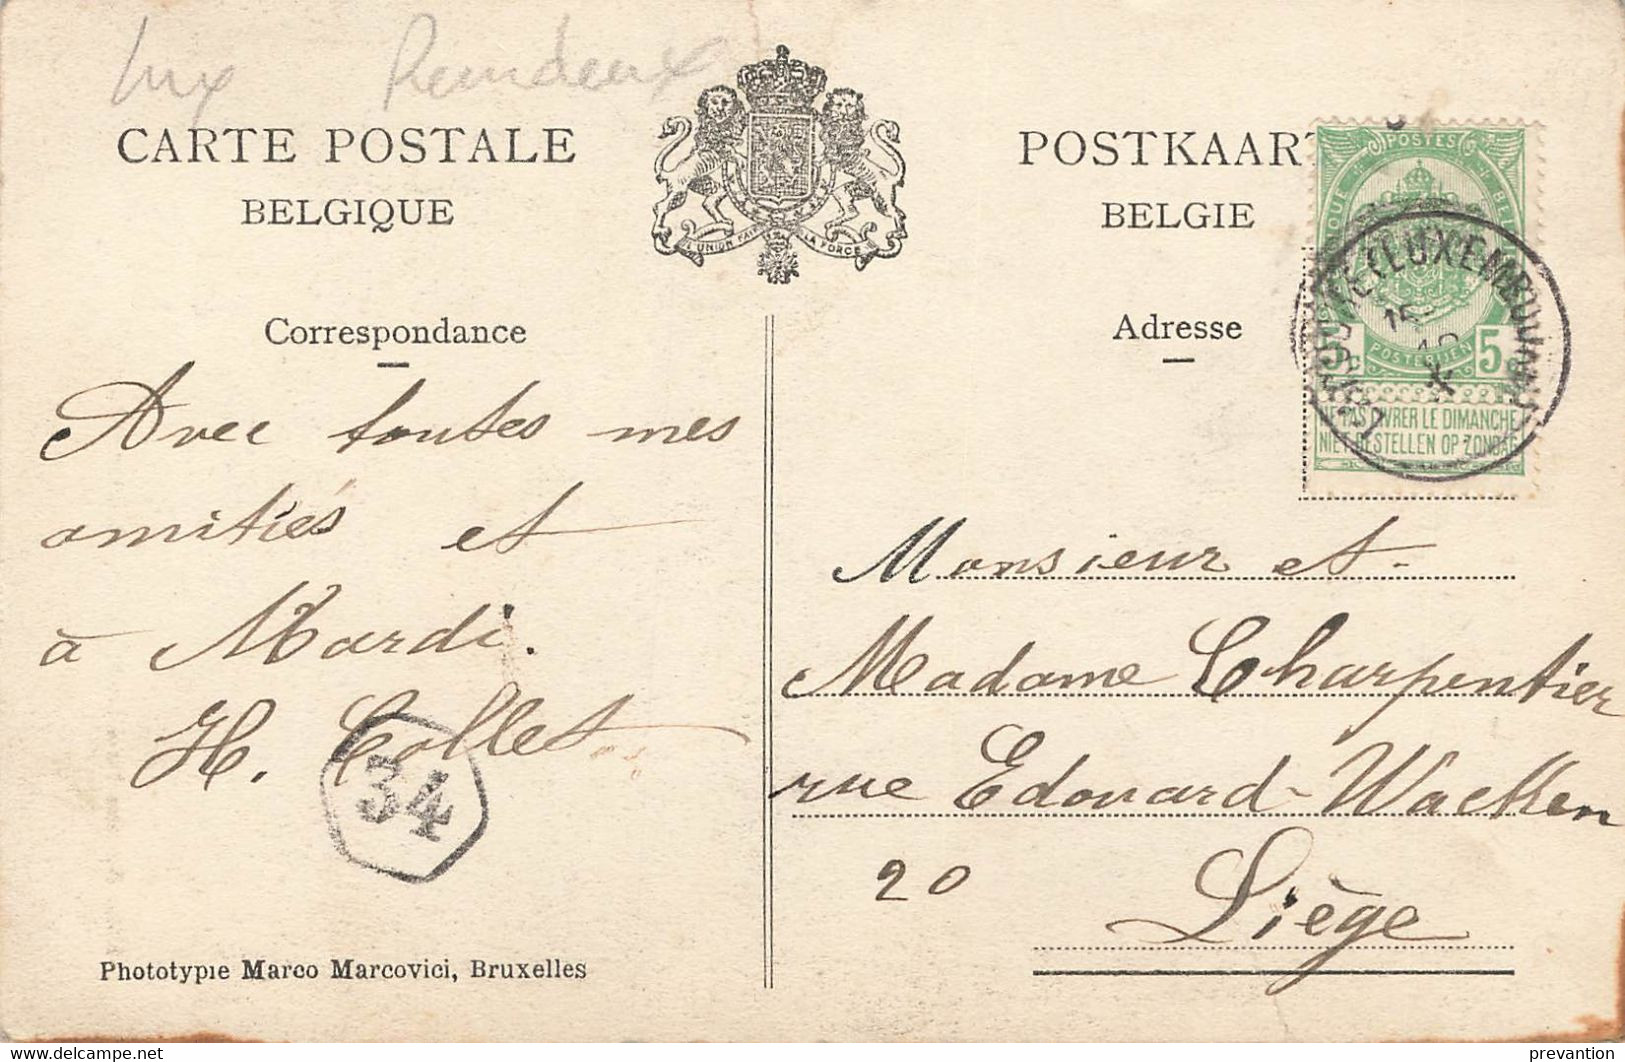 Lux Rendeux
CARTE POSTALE
BELGIQUE
L'UNION FAIT LA FORCE
POSTKAART
BELGIE
Correspondance
Adresse
POSTES
POSTERIJEN
5
NE PAS LIVRER LE DIMANCHE
NIET BESTELLEN OP ZONDAG
(LUXEMBOURG)
15
Avec toutes mes
amitiés et
à Mardi.
H. Collet
34
Monsieur et
Madame Charpentier
rue Edouard-Wacken
20
Liège
Phototypie Marco Marcovici, Bruxelles
prevantion